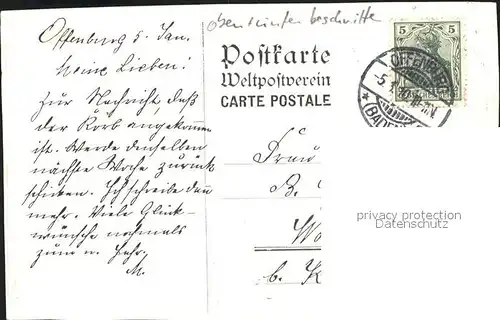 Offenburg 5. Jan.
Meine Lieben!
Zur Nachricht, daß
der Korb angekommen
ist. Werde denselben
nächste Woche zurück
schicken. Ich schreibe dann
mehr. Viele Glück-
wünsche nochmals
zum n. Jahr.
M.
oben hinten beschnitten
Postkarte
Weltpostverein
CARTE POSTALE
5 5
OFFENBURG
-5.1.
* (BADEN)
Frau
B.
b. K
privacy protection
Datenschutz